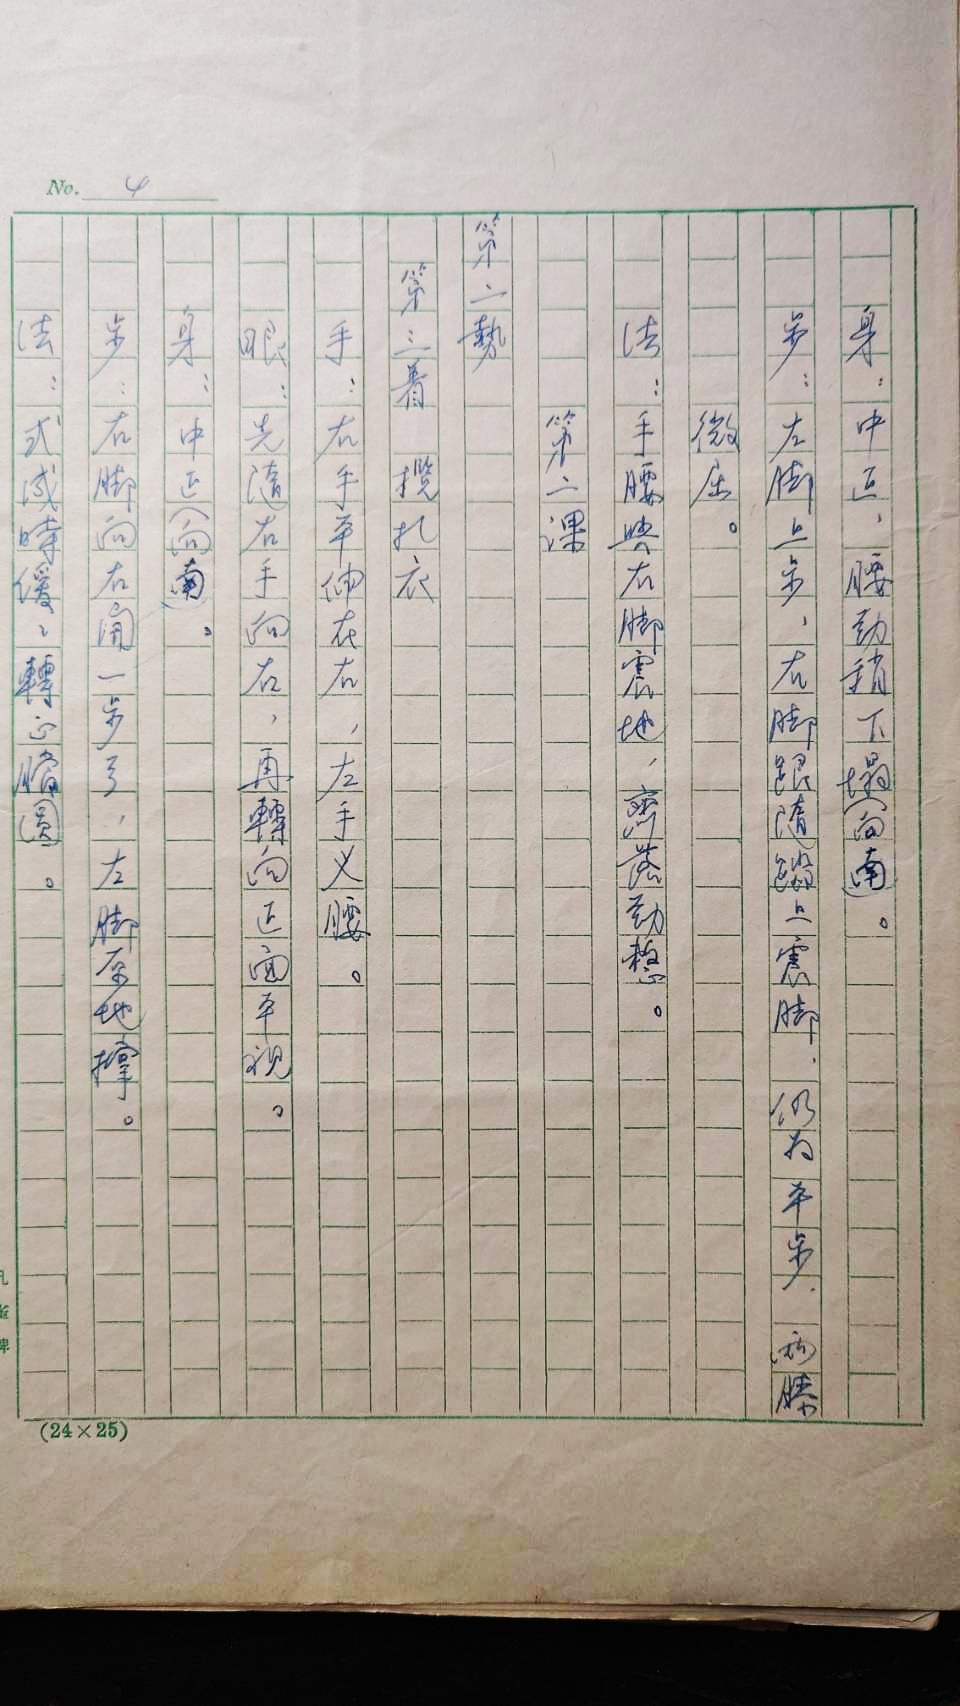 No. 4
身：中正，腰勁稍下塌(向南)。
步：左脚上步，右脚跟隨蹈上震脚，仍为平步，两膝
微屈。
法：手腰與右脚震地，齊落勁整。
第二课
第二勢
第三着 攬扎衣
手：右手平伸在右，左手义腰。
眼：先隨右手向右，再轉向正面平視。
身：中正(向南)。
步：右脚向右開一步弓，左脚原地撑。
法：式成時缓缓轉正膽圆。
(24×25)